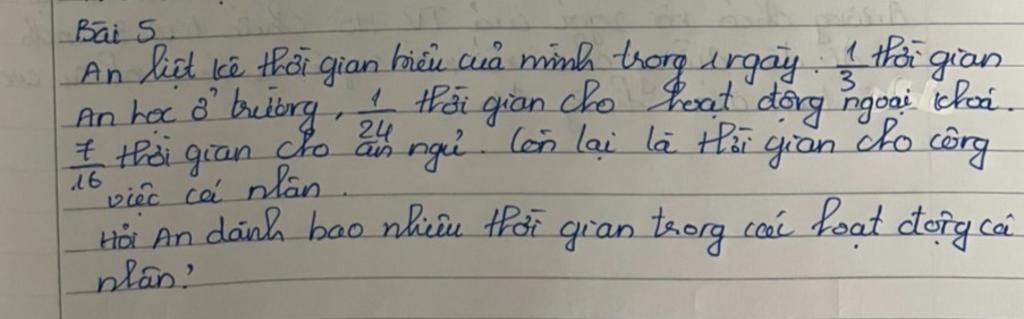 Bài 5
An liệt kê thời gian biểu của mình trong 1 ngày. 1/3 thời gian
An học ở trường, 1/24 thời gian cho hoạt động ngoại khoá.
7/16 thời gian cho ăn ngủ. Còn lại là thời gian cho công
việc cá nhân.
Hỏi An dành bao nhiêu thời gian trong các hoạt động cá
nhân?